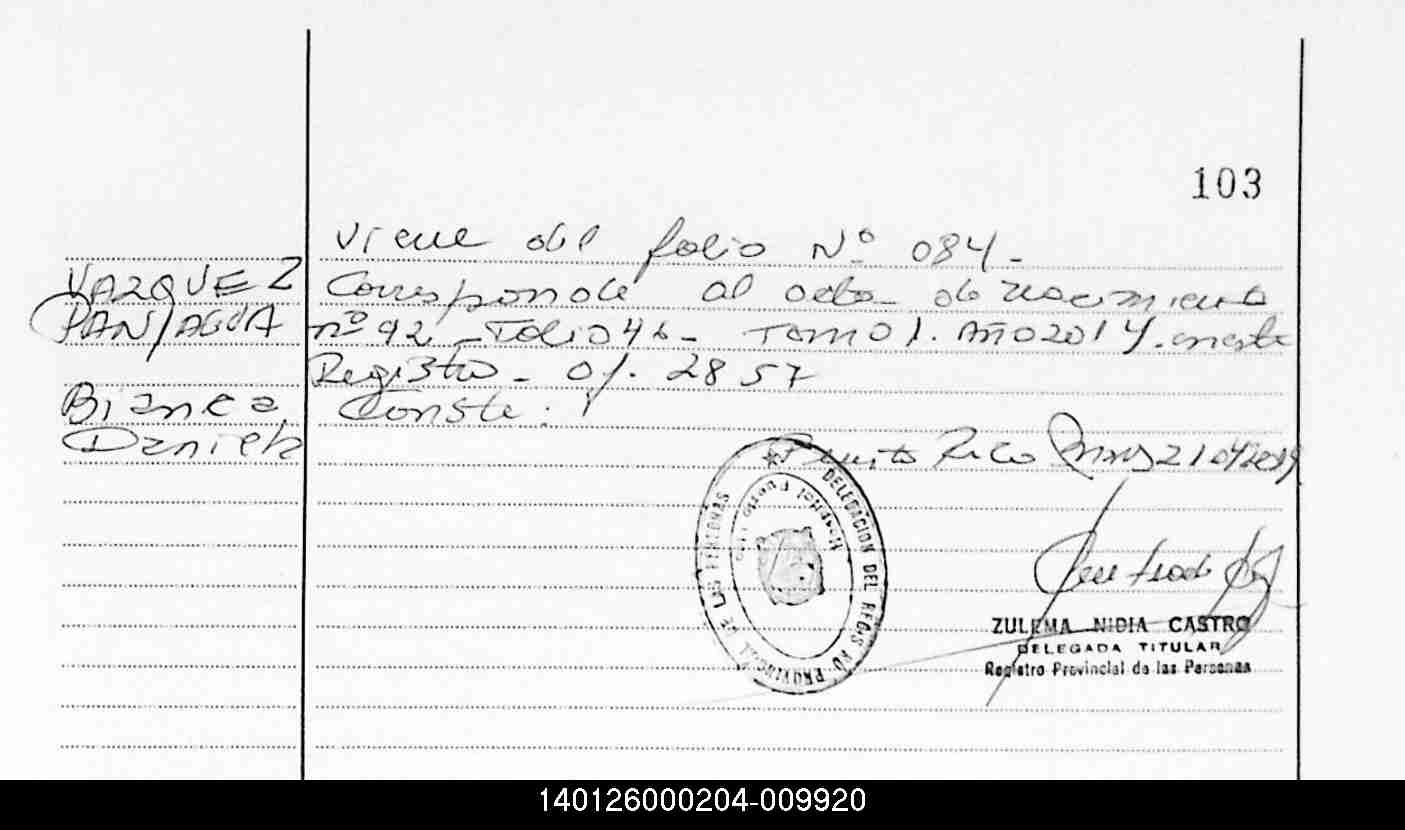 103
viene del folio Nº 084-
VAZQUEZ Corresponde al acta de nacimiento
PANIAGUA nº 92 - Folio 46 - Tomo 1. Año 2014. en este
Registro - Of. 2857
Bianca Conste.
Daniela
Puerto Rico Mnes 21 04 2014
DELEGACION DEL REGISTRO PROVINCIAL DE LAS PERSONAS
Hospital Puerto Rico
ZULEMA NIDIA CASTRO
DELEGADA TITULAR
Registro Provincial de las Personas
140126000204-009920